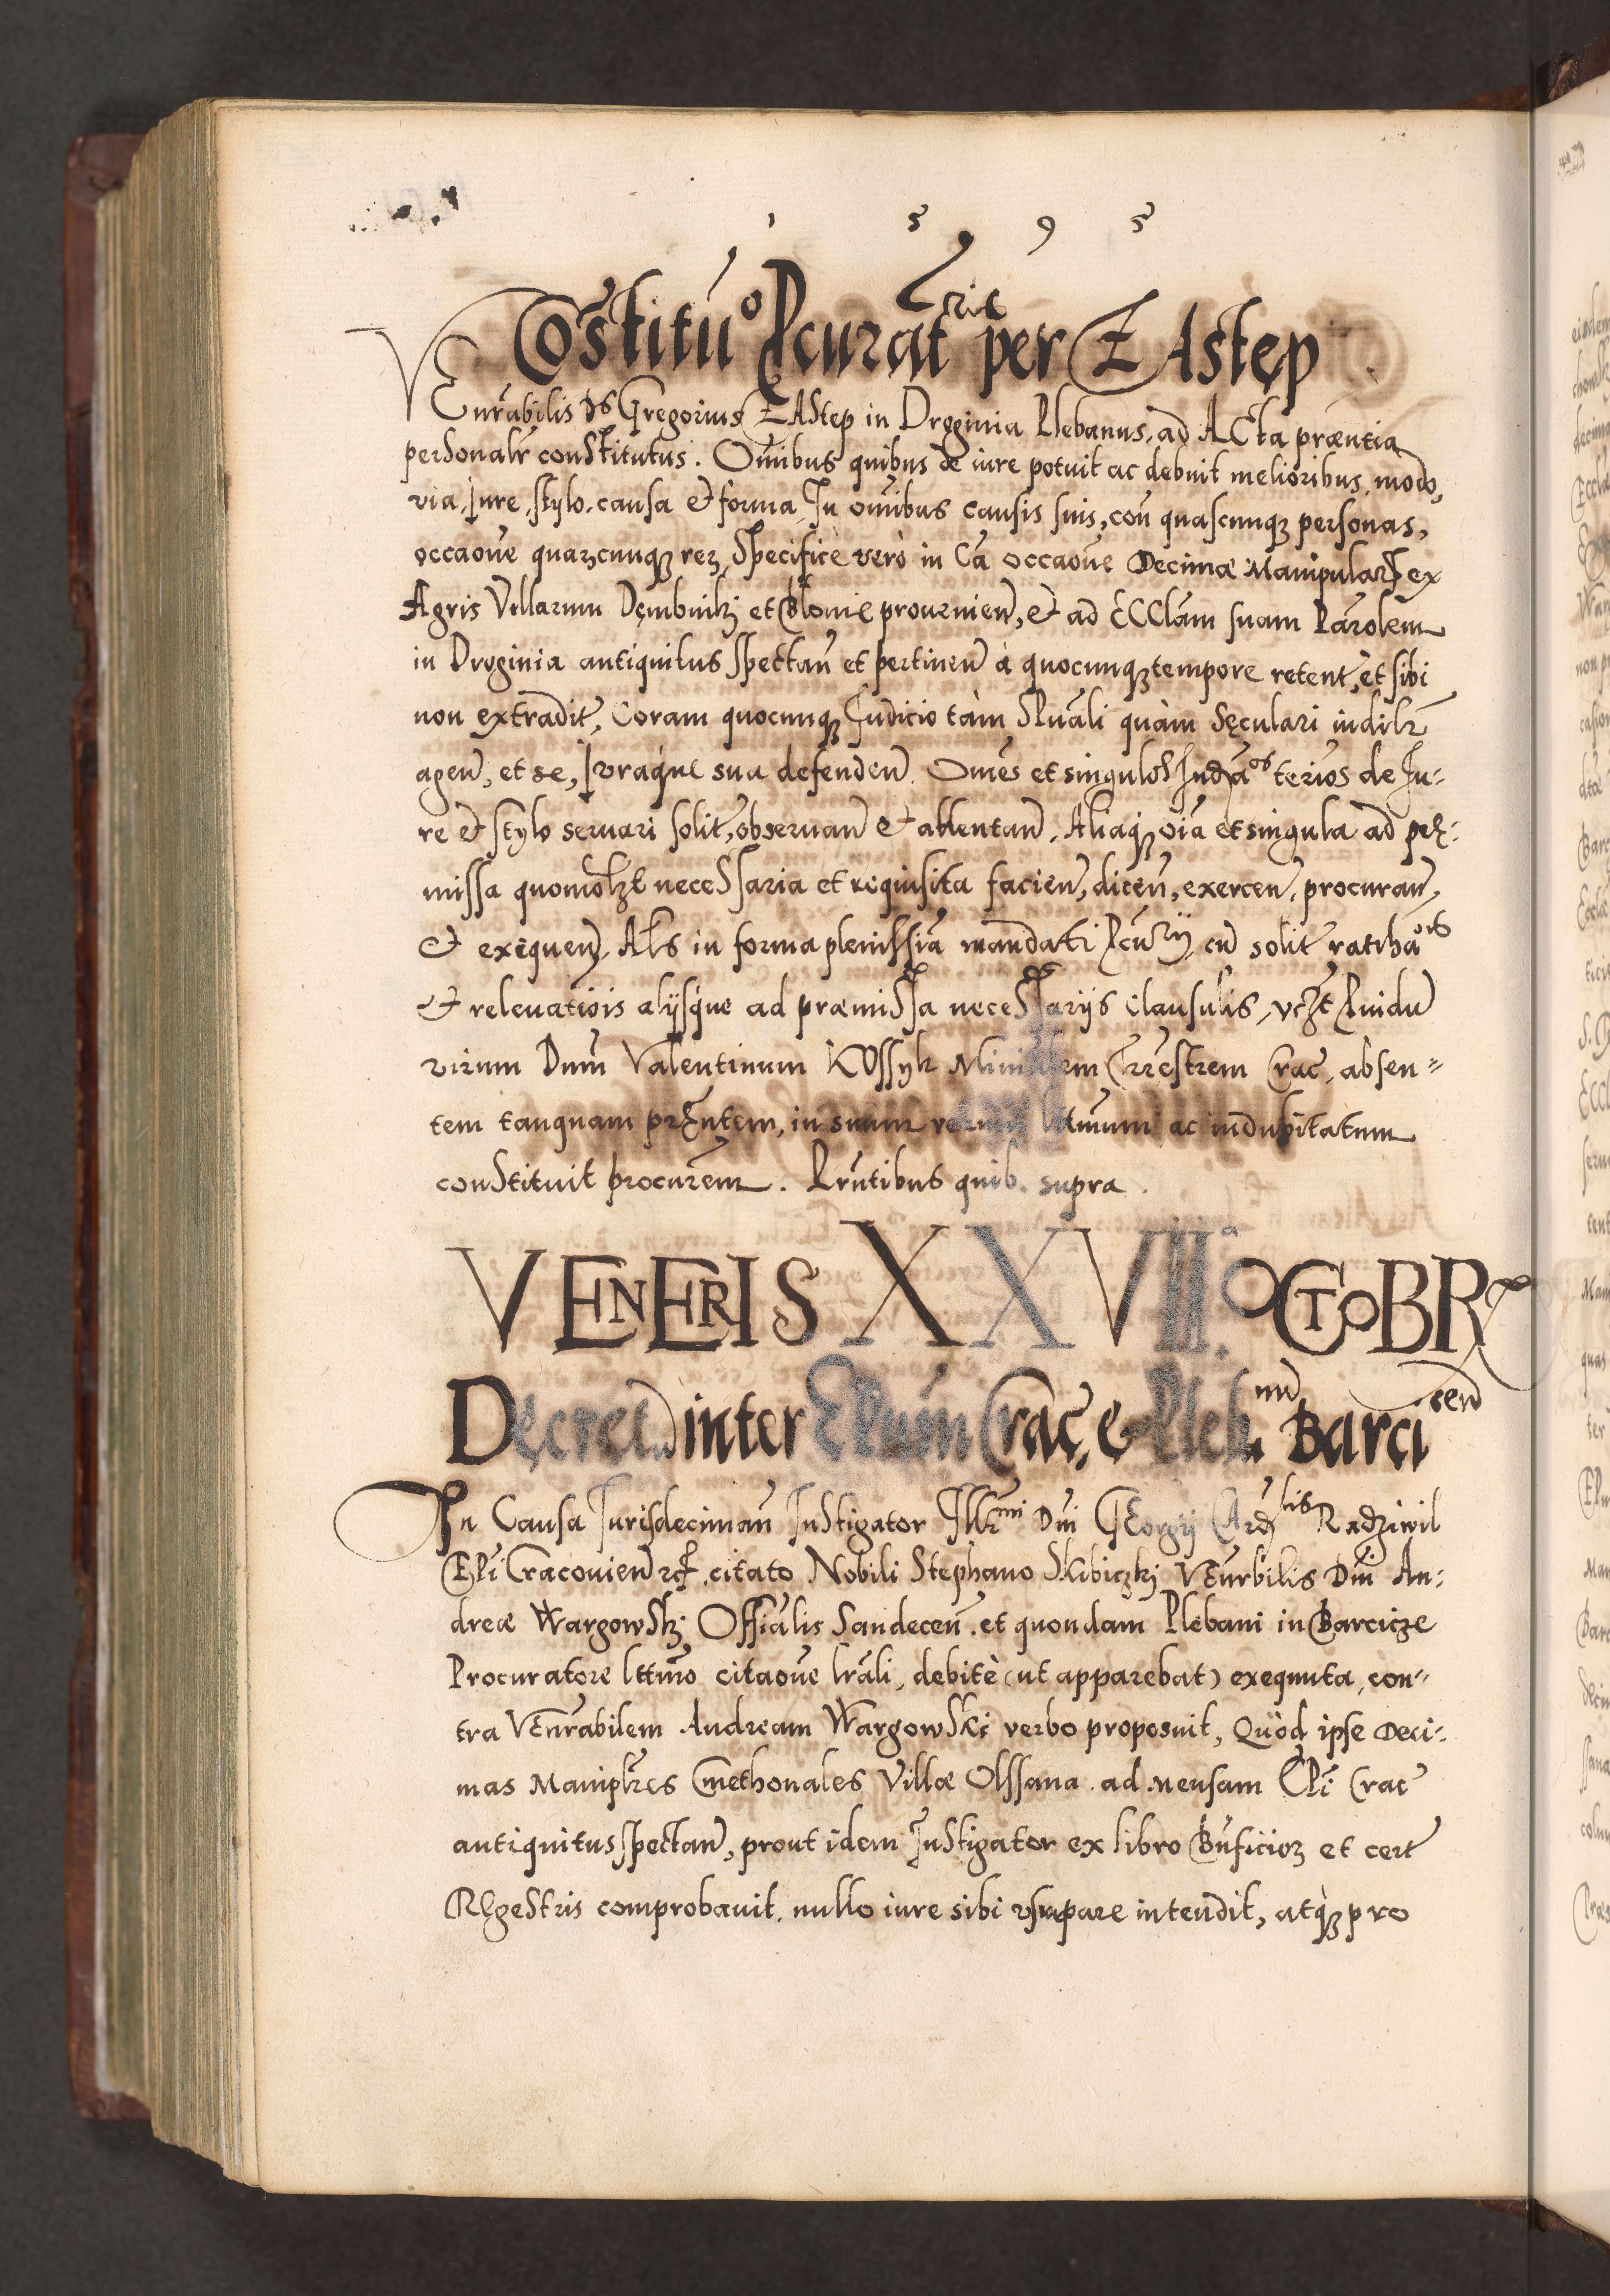 1 5 9 5
Constitu° Pcurat ric per ZAstęp
VEnrabilis Ds Gregorius ZAStęp in Droginia Plebanus, ad ACta præntia
personalr conStitutus. Omibus quibus de iure potuit ac debuit melioribus, modo,
via, Jure, stylo, causa et forma, In omibus causis suis, con quascunqz personas,
occaone quarcunqz rerz, Specifice verò in Ca occaone Decimæ Manipular ex
Agris Villarum Dembnikj et Blonie prouenien, et ad ECClam suam Parolem
in Droginia antiquitus spectan et pertinen à quocunqz tempore retent, et sibi
non extradit, Coram quocunqz Judicio tàm Spuali quàm Sęculari indilr
agen, et se, Juraque sua defenden. Omes et singulos terios de Ju-
re et stylo seruari solit, obseruan et attentan. Aliaqz oia et singula ad prę-
missa quomolzt neceSsaria et requisita facien, dicen, exercen, procuran,
et exequen. Als in forma plenissia mandati Pcurij, cu solit ratiha ois
et releuatiois alijsque ad præmiSsa neceSsarijs clausulis, vczt Puidu
virum Dnum Valentinum KOssyk Ministrem Crrestrem Crac, absen-
tem tanquam prÆntem, in suum verum lttmum ac indubitatum
conStituit procurem. Prntibus quib. supra.
VENERIS XXVIIa OCTOBR
Decretu inter EPum Crac, et Plebnu Barcicen
In Causa Jurisdeciman InStigator Illrmi Dni GEorgij CArdlis Radziwil
EPi Cracouien etc. citato Nobili Stephano Skibiczkj VEnrbilis Dni An-
dreæ WargowSkj Offialis Sandecen. et quondam Plebani in Barcicze
Procuratore lttmo citaone lrali, debitè (ut apparebat) exequuta, con-
tra VEnrabilem Andream WargowSki verbo proposuit, Quòd ipse Deci-
mas Maniplres Cmethonales Villæ Olssana ad mensam EPi Crac
antiquitus spectan, prout idem InStigator ex libro Bnficiorz et cert
REgeStris comprobauit, nullo iure sibi vsurpare intendit, atqz pro